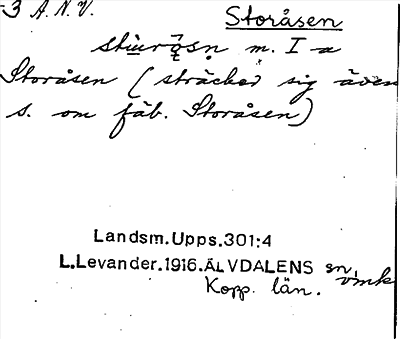 -3 A.N.V.
Storåsen
stùurǫ̃sn m. I-a
Storåsen (sträcker sig även
s. om fäb. Storåsen)
Landsm.Upps.301:4
L.Levander.1916.ÄLVDALENS sn,
vmk
Kopp. län.